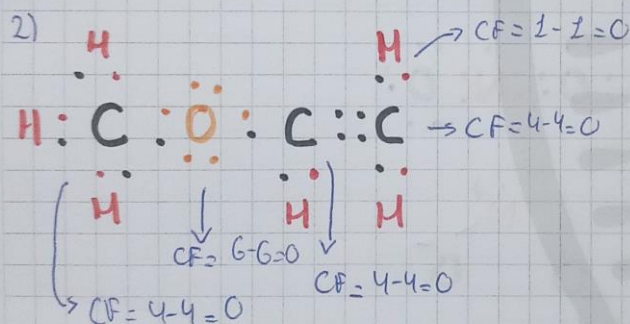 2)
H H → CF=1-1=0
H:C:O:C::C → CF=4-4=0
H H H
CF= 6-6=0
CF=4-4=0
CF=4-4=0